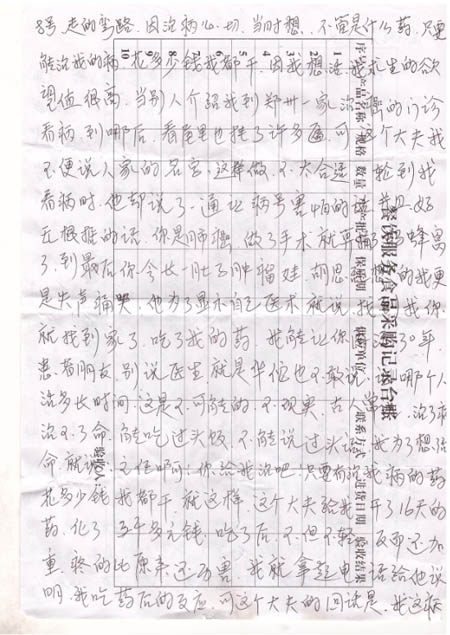 走的弯路,因治病心切,当时想,不管是什么药,只要
能治我的病,花多少钱我都干,因我想活,我求生的欲
望值很高,当别人介绍我到郑州一家治癌的门诊
看病,到哪后,看屋里也挂了许多,可这个大夫我
不便说人家的名字,这样做,不大合适,轮到我
看病时,他却说了一通让病号害怕的话,
无根据的话,你是肺癌,做了手术就
了,到最后你会长一肚子肿瘤娃,胡思我更
是失声痛哭,他为了显示自己医术就说,找我你
就找到家了,吃了我的药,我能让你活30年,
患者朋友,别说医生就是华佗也不敢说让哪个人
活多长时间,这是不可能的,不现实,古人常,治了病
治不了命,能吃过头饭,不能说过头话,我为了想活
命就说,你给我治吧,只要有治我病的药
花多少钱我都干,就这样,这个大夫给我开了16天的
药,化了五千多元钱,吃了后,不但不轻反而还加
重,疼的比原来还历害,我就拿起电话给他说
明,我吃药后的反应,可这个大夫的回话是,我这药
餐饮服务食品采购记录台账
序号 产品名称 规格 数量 生产批号 保质期 供货单位 联系方式 进货日期 验收结果
1
2
3
4
5
6
7
8
9
10
验收人